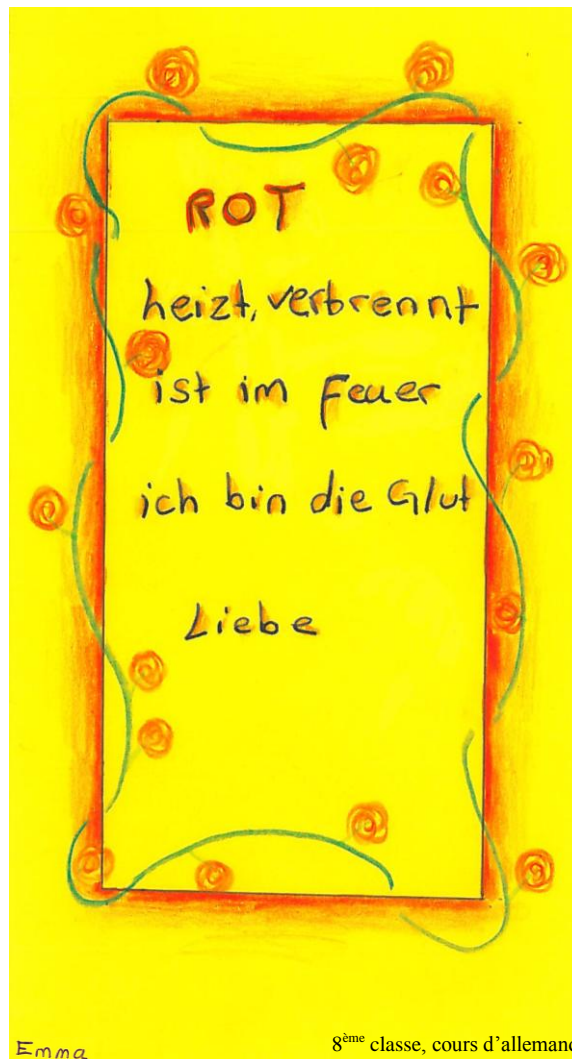 ROT
heizt, verbrennt
ist im Feuer
ich bin die Glut
Liebe
Emma
8ème classe, cours d'allemand